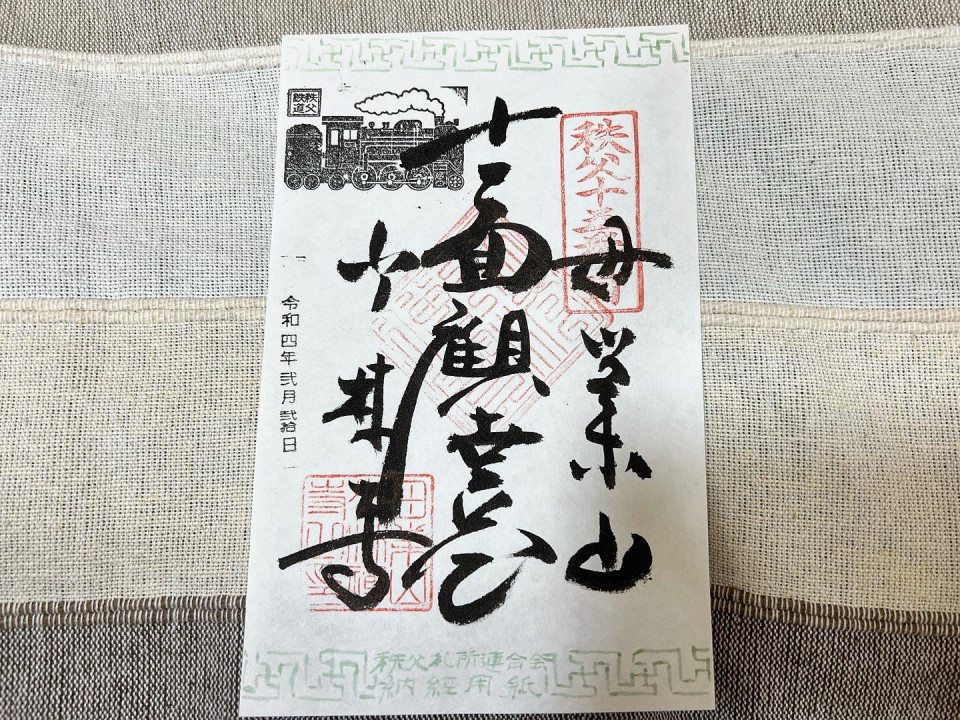 秩父十五番
母巣山
十一面觀世音
少林寺
秩父
鉄道
令和四年弐月弐拾日
秩父札所連合会
納経用紙